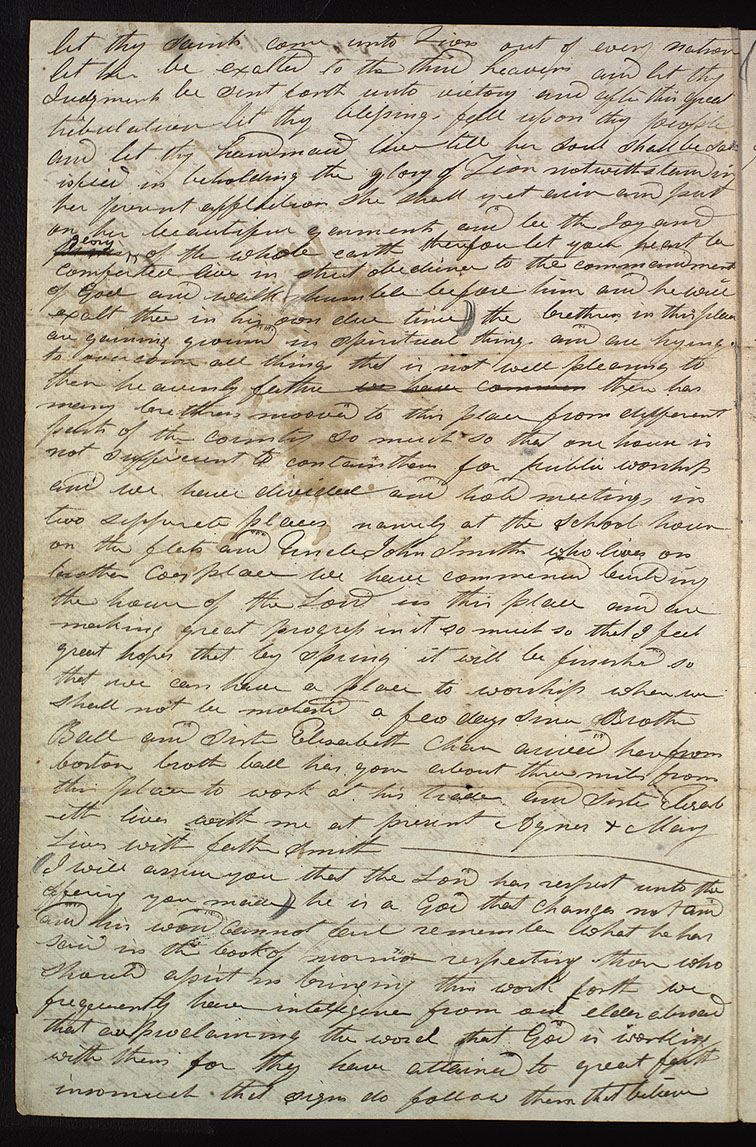 let thy saints come unto Zion out of every nation
let her be exalted to the third heavens and let thy
Judgment be sent forth unto victory and after this great
tribulation let thy blessings fall upon thy people
and let thy handmaid live till her soul shall be sat
isfied in beholding the glory of Zion notwithstanding
her present affliction she shall yet arise and put
on her beautiful garments and be the Joy and
glory of the whole earth therefore let your heart be
comforted live in strict obedience to the commandments
of God and walk humble before him and he will
exalt thee in his own due time) the brethren in this place
are gaining ground in spiritual things and are trying
to overcome all things that is not well pleasing to
their heavenly father we have common there has
many brethren mooved to this place from different
parts of the country so much so that one house is
not sufficient to contain them for public worship
and we have divided and hold meetings in
two sepperate places namely at the school house
on the flats and Uncle John Smiths who lives on
brother Coes place we have commenced building
the house of the Lord in this place and are
making great progress in it so much so that I feel
great hopes that by spring it will be finished so
that we can have a place to worship where we
shall not be molested a few days since Brother
Ball and Sister Elisabeth Chase arived here from
boston broth ball has gon about three miles from
this place to work at his trade and sister Elisab
-eth lives with me at present Agnes & Mary
Lives with fathr Smith
(I will assure you that the Lord has respect unto the
offering you made) he is a God that changes not and
and his word cannot fail remember what he has
said in the book of mormon respecting those who
should assist in bringing this work forth we
frequently have inteligence from our elders abroad
that are proclaiming the word that God is working
with them for they have attained to great faith
insomuch that signs do follow them that believe